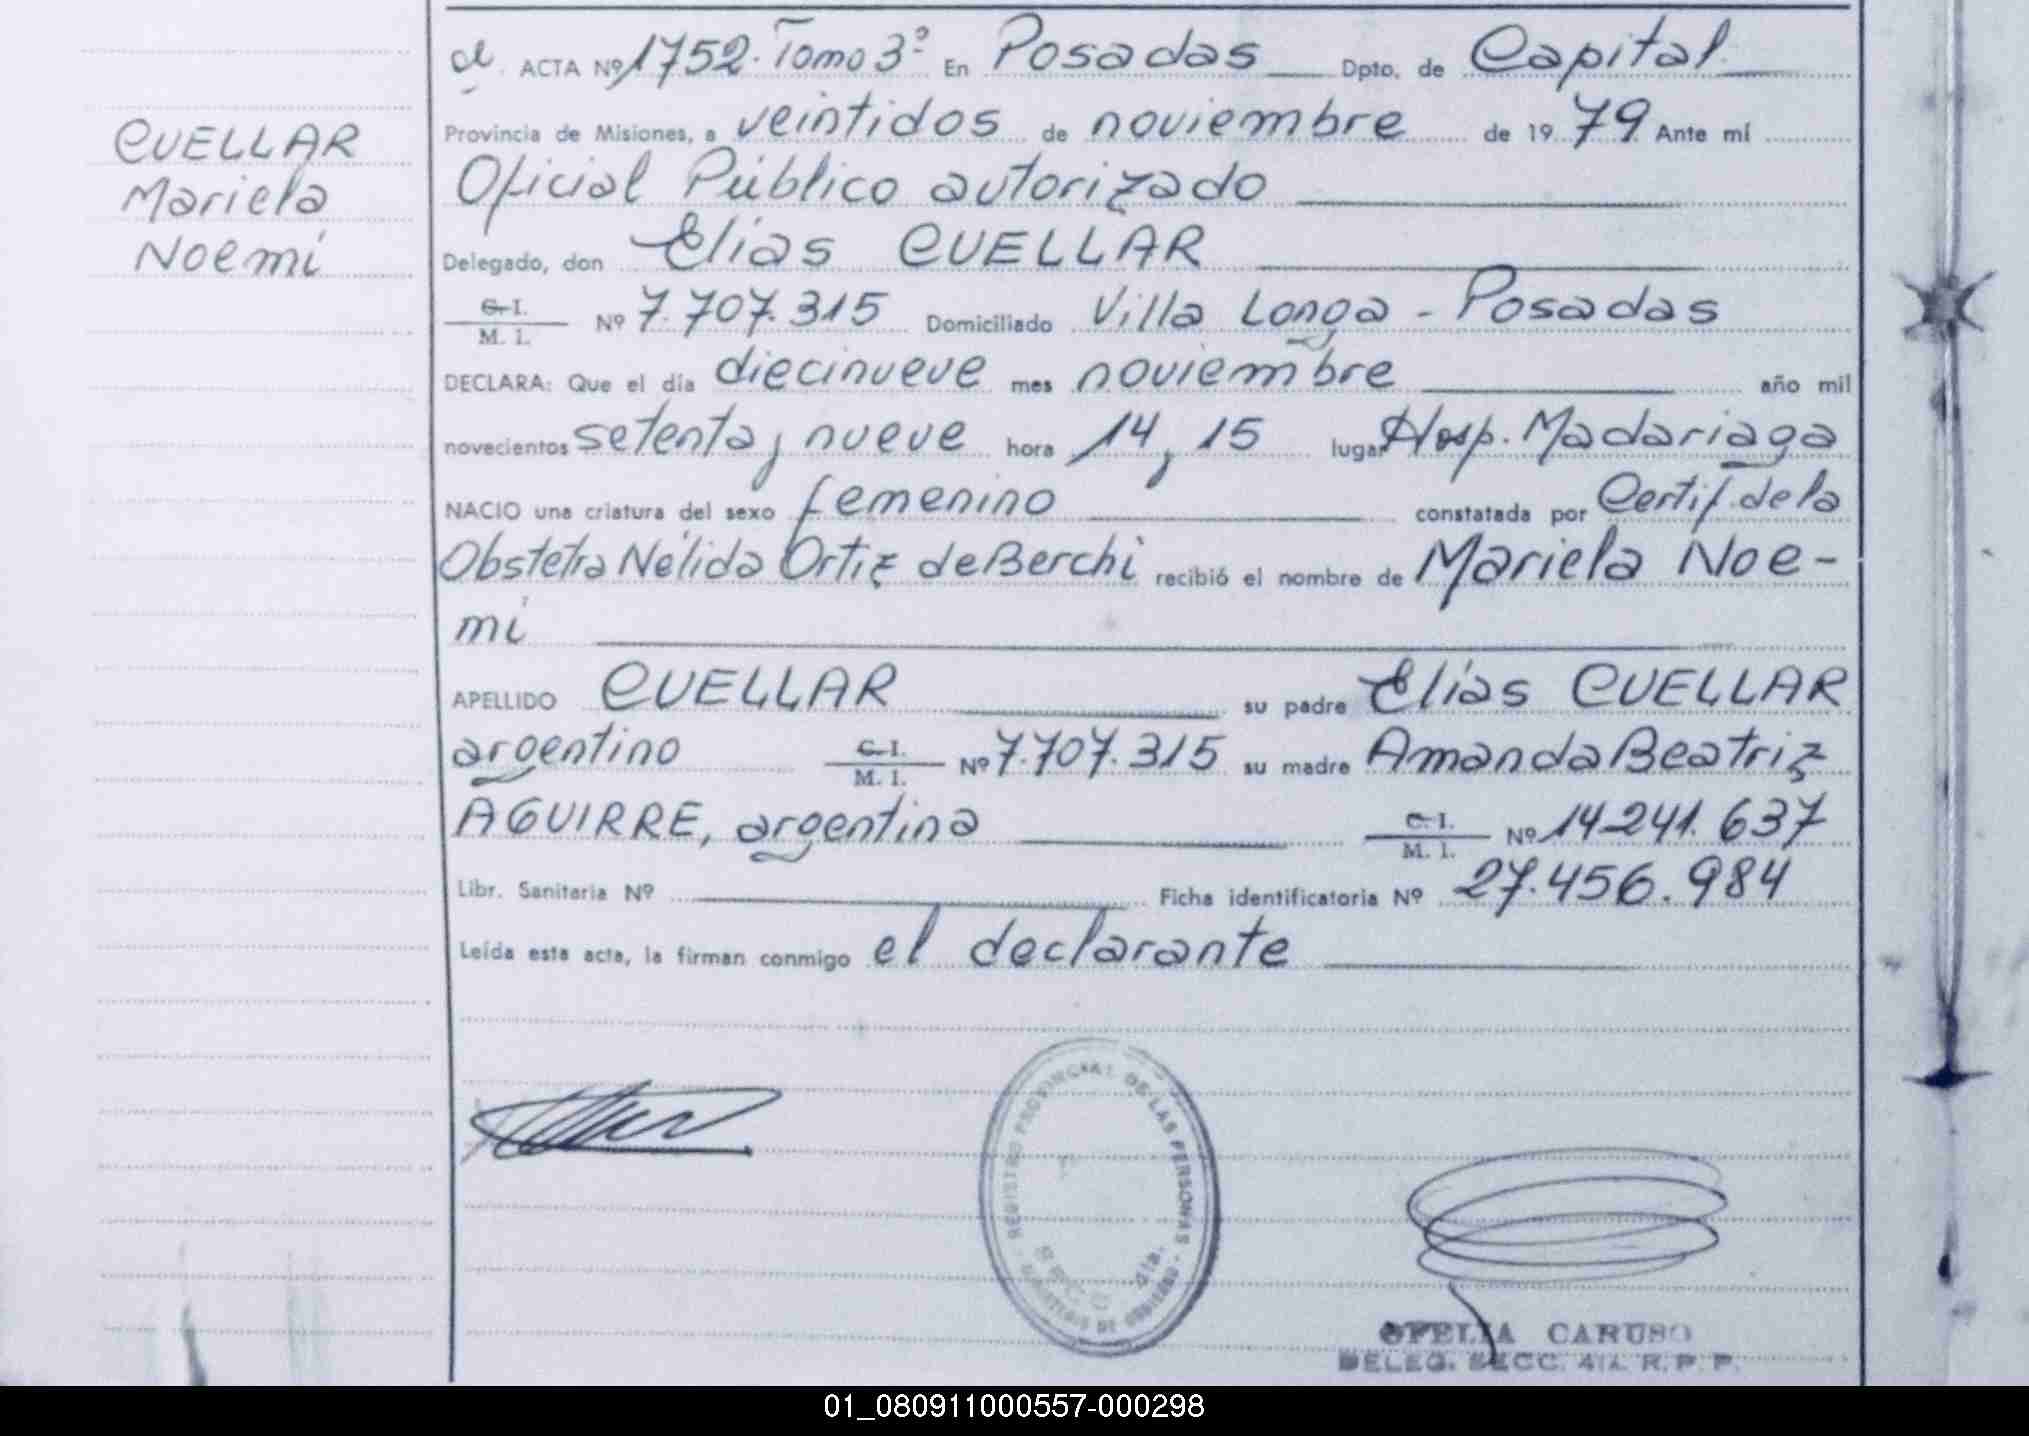 CUELLAR
Mariela
Noemí
ACTA Nº 1752. Tomo 3º En Posadas Dpto. de Capital
Provincia de Misiones, a veintidos de noviembre de 1979 Ante mí
Oficial Público autorizado
Delegado, don Elias CUELLAR
C. I.
M. I.
Nº 7.707.315 Domiciliado Villa Longa - Posadas
DECLARA: Que el día diecinueve mes noviembre año mil
novecientos setenta y nueve hora 14,15 lugar Hosp. Madariaga
NACIO una criatura del sexo femenino constatada por Certif. de la
Obstetra Nélida Ortiz de Berchi recibió el nombre de Mariela Noe-
mí
APELLIDO CUELLAR su padre Elías CUELLAR
argentino C. I. M. I. Nº 7.707.315 su madre Amanda Beatriz
AGUIRRE, argentina C. I. M. I. Nº 14241.637
Libr. Sanitaria Nº Ficha identificatoria Nº 27.456.984
Leída esta acta, la firman conmigo el declarante
REGISTRO PROVINCIAL DE LAS PERSONAS
MINISTERIO DE GOBIERNO
OFELIA CARUSO
DELEG. SECC. 4ta. R. P. P.
01_080911000557-000298